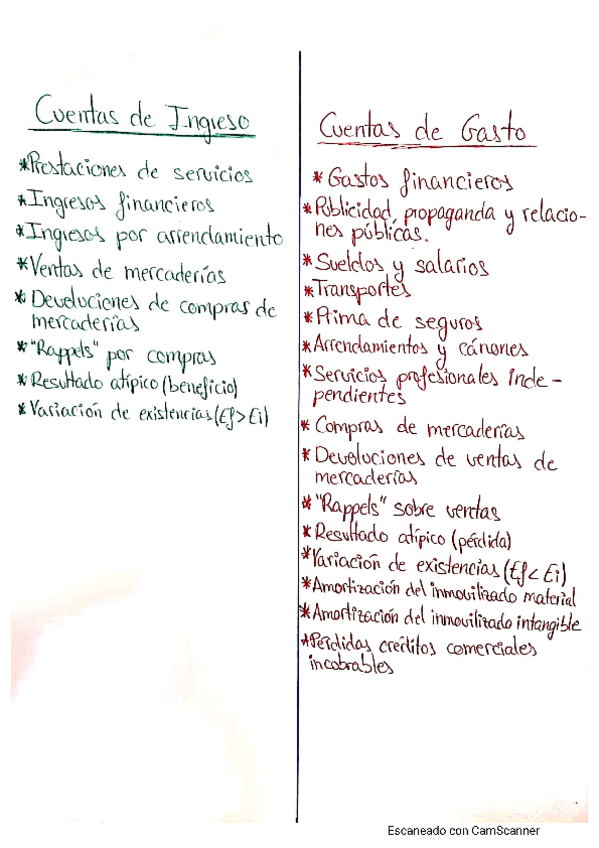 Cuentas de Ingreso
*Prestaciones de servicios
*Ingresos financieros
*Ingresos por arrendamiento
*Ventas de mercaderías
* Devoluciones de compras de
mercaderías
*"Rappels" por compras
* Resultado atípico (beneficio)
* Variación de existencias (Ef>Ei)
Cuentas de Gasto
* Gastos financieros
* Publicidad, propaganda y relacio-
nes públicas.
* Sueldos y salarios
*Transportes
* Prima de seguros
* Arrendamientos y cánones
* Servicios profesionales inde-
pendientes
* Compras de mercaderías
* Devoluciones de ventas de
mercaderías
* "Rappels" sobre ventas
* Resultado atípico (pérdida)
*Variación de existencias (Ef< Ei)
*Amortización del inmovilizado material
*Amortización del inmovilizado intangible
*Pérdidas créditos comerciales
incobrables
Escaneado con CamScanner